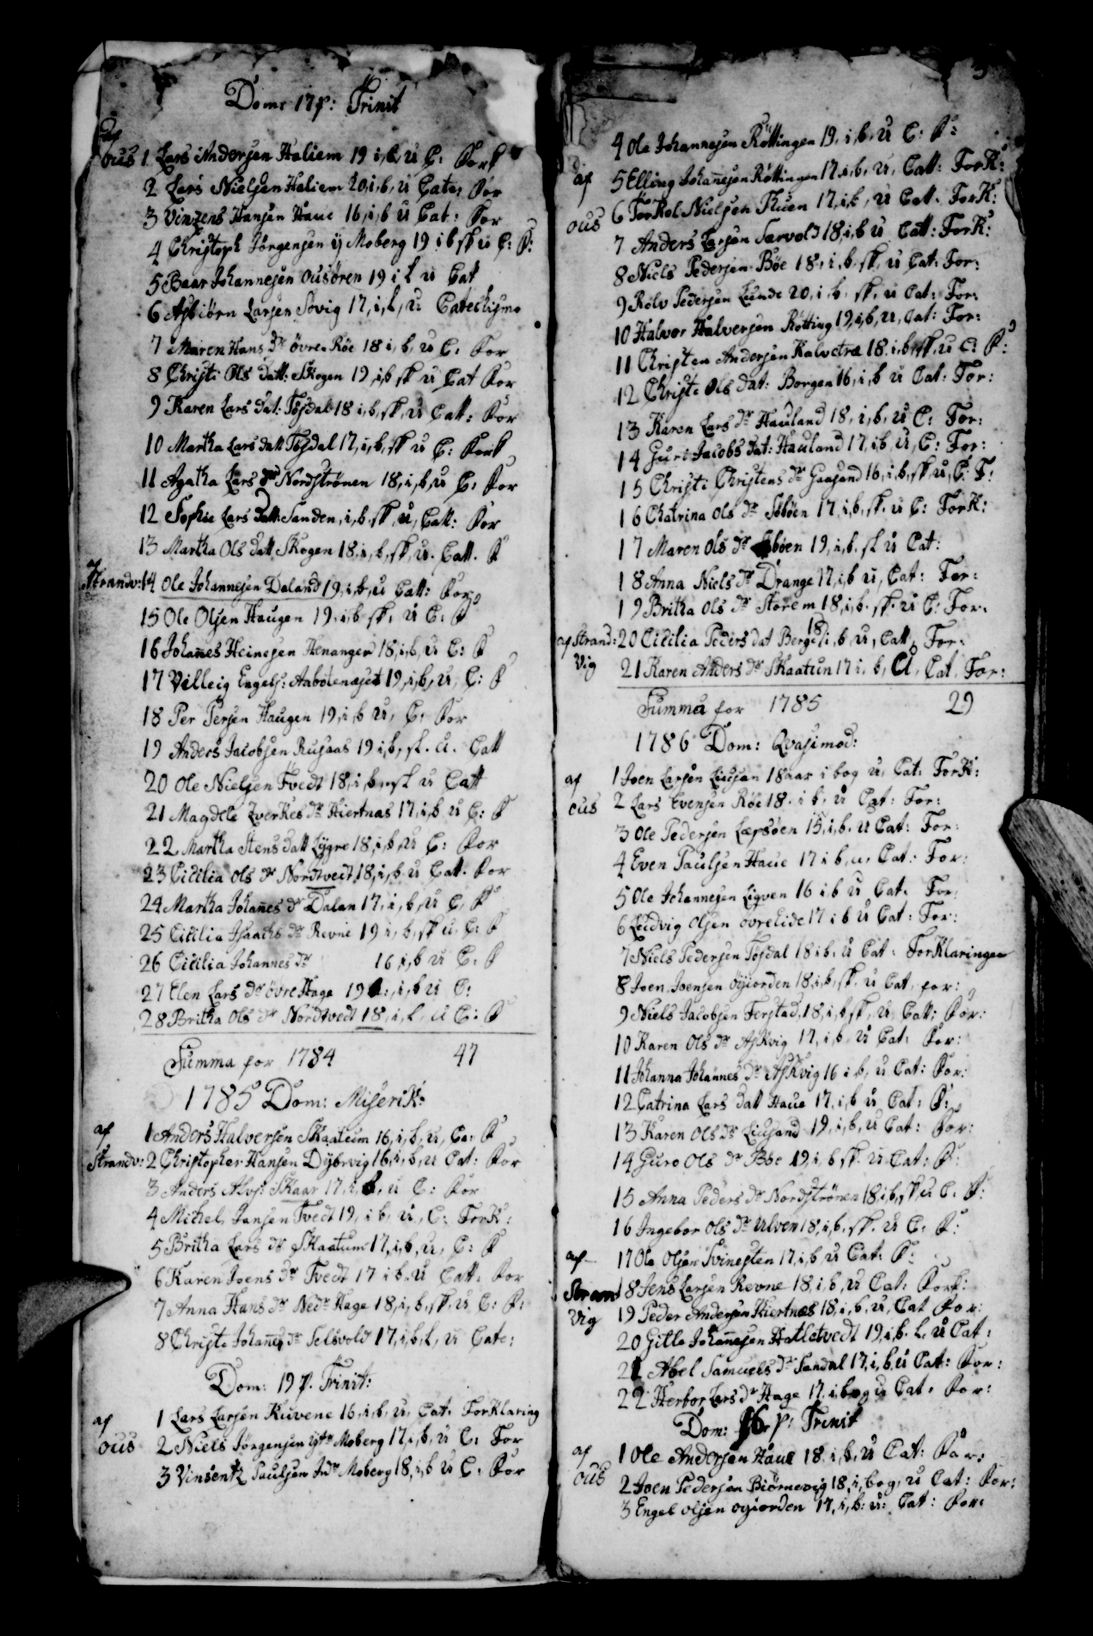 Dom: 17 p: Trinit
af
ous 1 Lars Andersen Haliem 19 i, b, u C: Fork
2 Lars Nielsen Haliem 20, i b, u Cate, For
3 Vinzens Hansen Haue 16, i b u Cat: For
4 Christoph Jörgensen ÿ Moberg 19 i b sk u C: F:
5 Baar Johannesen Ousören 19 i b u Cat
6 Asbiörn Larsen Sövig 17, i, b, u Catechismo
7 Maren Hans Dr övre Röe 18 i, b, u C: For
8 Christi Ols datt: Skogen 19, i b sk u Cat For
9 Karen Lars dat: Tösdal 18 i, b, sk, u Catt: For
10 Martha Lars datt Tösdal 17, i, b, sk u C: Fork
11 Agatha Lars Dr Nordströnen 18, i, b, u C, For
12 Sophie Lars datt: Sanden, i, b, sk, u, Catt: For
13 Martha Ols datt Skogen 18, i, b, sk, u. Catt. F
af
Strandv: 14 Ole Johannesen Daland 19, i b, u Catt: For
15 Ole Olsen Haugen 19, i b sk, u C: F
16 Johañes Heinesen Henanger 18, i, b, u C: F
17 Villeig Engels: Aabotenæset 19, i, b, u, C: F
18 Per Persen Haugen 19, i b u, C, For
19 Anders Jacobsen Rusaas 19 i b, sk. u. Catt
20 Ole Nielsen Tvedt 18, i b, sk u Catt
21 Magdele Zverkes Dr Hiertnas 17, i, b u C: F
22 Martha Stens datt Lygre 18, i, b, u C: For
23 Cicilia Ols Dr Nordtvedt 18, i, b u Catt. For
24 Martha Johañes Dr Dalan 17, i, b, u C, F
25 Cicilia Isaachs Dr Revne 19 i, b, sk u C: F
26 Cicilia Johannes Dr 16, i, b u C. F
27 Elen Lars Dr övre Hage 19, i, b u C:
28 Britha Ols Dr Nordtvedt 18, i, b, u C: F
Summa for 1784 47
1785 Dom: Miserik:
af 1 Anders Halversen Skaatum 16, i, b, u, Ca: F
Strandv: 2 Christopher Hansen Dybvig 16, i b, u Cat: For
3 Anders Alvs: Skaar 17, i, b, u C: For
4 Michel Jansen Tvedt 19, i b, u, C: Fork:
5 Britha Lars Dr Skaatum 17, i, b, u, C: F
6 Karen Joens Dr Tvedt 17 i b. u Catt. For
7 Anna Hans Dr Nedr Hage 18, i, b, sk, u C: F:
8 Christi Johañes Dr Selsvold 17, i, b, k, u Cate:
Dom: 19 p. Trinit:
af 1 Lars Larsen Kuvene 16, i, b, u, Cat. Forklaring
ous 2 Niels Jörgensen ytr Moberg 17, i, b, u C: For
3 Vinsentz Paulsen Indr Moberg 18, i, b u C: For
4 Ole Johannesen Röttingen 19, i, b, u C: F:
af 5 Elling Johañesen Röttingen 17, i, b, u, Catt: Fork:
ous 6 Torkel Nielsen Thuen 17, i, b, u Catt. Fork:
7 Anders Larsen Sarvold 18, i, b u Catt: Fork:
8 Niels Pedersen Böe 18, i, b, sk, u Cat: For:
9 Rolv Pedersen Lunde 20, i, b, sk, u Cat: For:
10 Halvor Halversen Rötting 19, i, b, u, Cat: For:
11 Christen Andersen Kalvetræ 18, i, b, sk, u C: F:
12 Christi Ols dat: Borgen 16, i, b u Cat: For:
13 Karen Lars Dr Hauland 18, i, b, u C: For:
14 Guri Jacobs dat: Hauland 17, i b, u, C: For:
15 Christi Christens Dr Gaasand 16, i, b, sk, u, C: F:
16 Chatrina Ols Dr Söböen 17, i, b, sk, u C: Fork:
17 Maren Ols Dr Söböen 19, i, b, sk u Cat:
18 Anna Niels Dr Drange 17, i, b u, Cat: For:
19 Britha Ols Dr Storem 18, i, b, sk. u C: For.
af Strand: 20 Cicilia Peders dat Berge 18 i, b, u, Catt. For:
Vig 21 Karen Anders Dr Skaatun 17 i. b, u, Cat, For:
Summa for 1785 29
1786 Dom: Qvasimod:
af 1 Joen Larsen Liusan 18 aar i bog u, Cat: Fork:
ous 2 Lars Evensen Röe 18. i b, u Cat: For:
3 Ole Pedersen Læpsöen 15, i, b, u Cat: For:
4 Even Paulsen Haue 17 i b, u, Cat: For:
5 Ole Johannesen Ligven 16 i b u Cat. For:
6 Ludvig Olsen övrelide 17 i b u Cat: For:
7 Niels Pedersen Tösdal 18 i b. u Cat. Forklaringen
8 Joen Joensen öyiorden 18, i, b, sk. u Cat, for:
9 Niels Jacobsen Ferstad 18, i, b, sk, u, Catt: For:
10 Karen Ols Dr Askvig 17, i, b, u Cat: For:
11 Johanna Johannes Dr Askvig 16 i b, u Cat: For:
12 Catrina Lars datt Haue 17, i, b u Cat: F:
13 Karen Ols Dr Liusand 19, i, b, u Cat: For:
14 Guro Ols Dr Böe 19, i, b sk. u Cat: F:
15 Anna Peders Dr Nordströnen 18, i b, sk u C. F:
16 Ingebor Ols Dr Ulven 18, i, b, sk. u C, F:
af 17 Ole Olsen Svinesten 17, i, b u Cat: F:
Strand 18 Jens Larsen Revne 18, i b, u Cat: Fork:
Vig 19 Peder Andersen Hiertnæs 18, i, b, u, Cat For:
20 Gitle Johañesen Hatletvedt 19, i, b. k, u Cat:
21 Abel Samuels Dr Sandal 17, i, b, u Cat: For:
22 Herbor Lars Dr Hage 17, i bog u Cat. For:
Dom: 16 p: Trinit
af 1 Ole Andersen Haue 18, i, b, u Cat: For:
ous 2 Joen Pedersen Biörnevig 18, i, bog, u Cat: For:
3 Engel Olsen oyiorden 17, i, b: u: Cat: For: